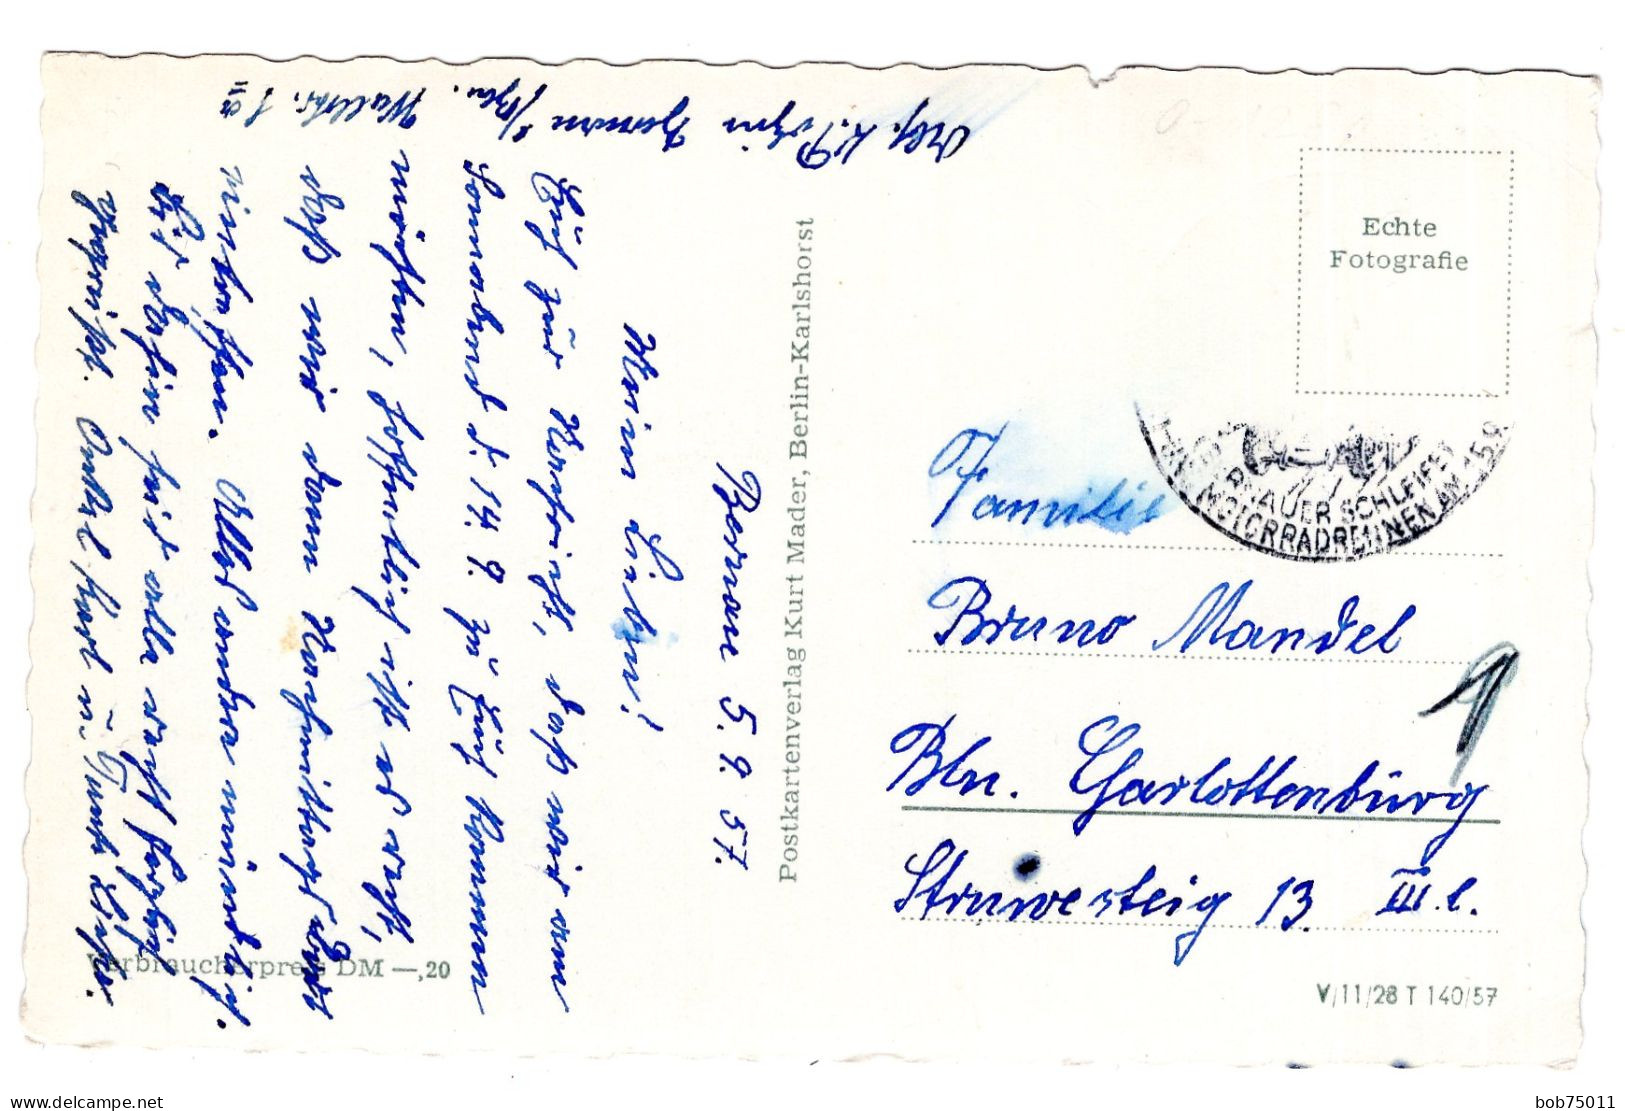 Bernau 5.9.57.
Meine Lieben!
Euch zur Nachricht, daß wir am
Sonnabend d. 14.9. zu Euch kommen
möchten, hoffentlich ist es recht,
daß wir dann Nachmittags dort
eintreffen. Alles andre mündlich.
Bis dahin seid alle recht herzlich
gegrüßt. Onkel Karl u. Tante Käthe.
Abs. K. Bernau b/Bln. Wallstr. 1a
Postkartenverlag Kurt Mader, Berlin-Karlshorst
Verbraucherpreis DM —,20
Echte
Fotografie
BERNAUER SCHLEIFE
MOTORRADRENNEN AM 15.9.
Familie
Bruno Mandel
Bln. Charlottenburg
Struwesteig 13 III l.
V/11/28 T 140/57
bob75011
www.delcampe.net